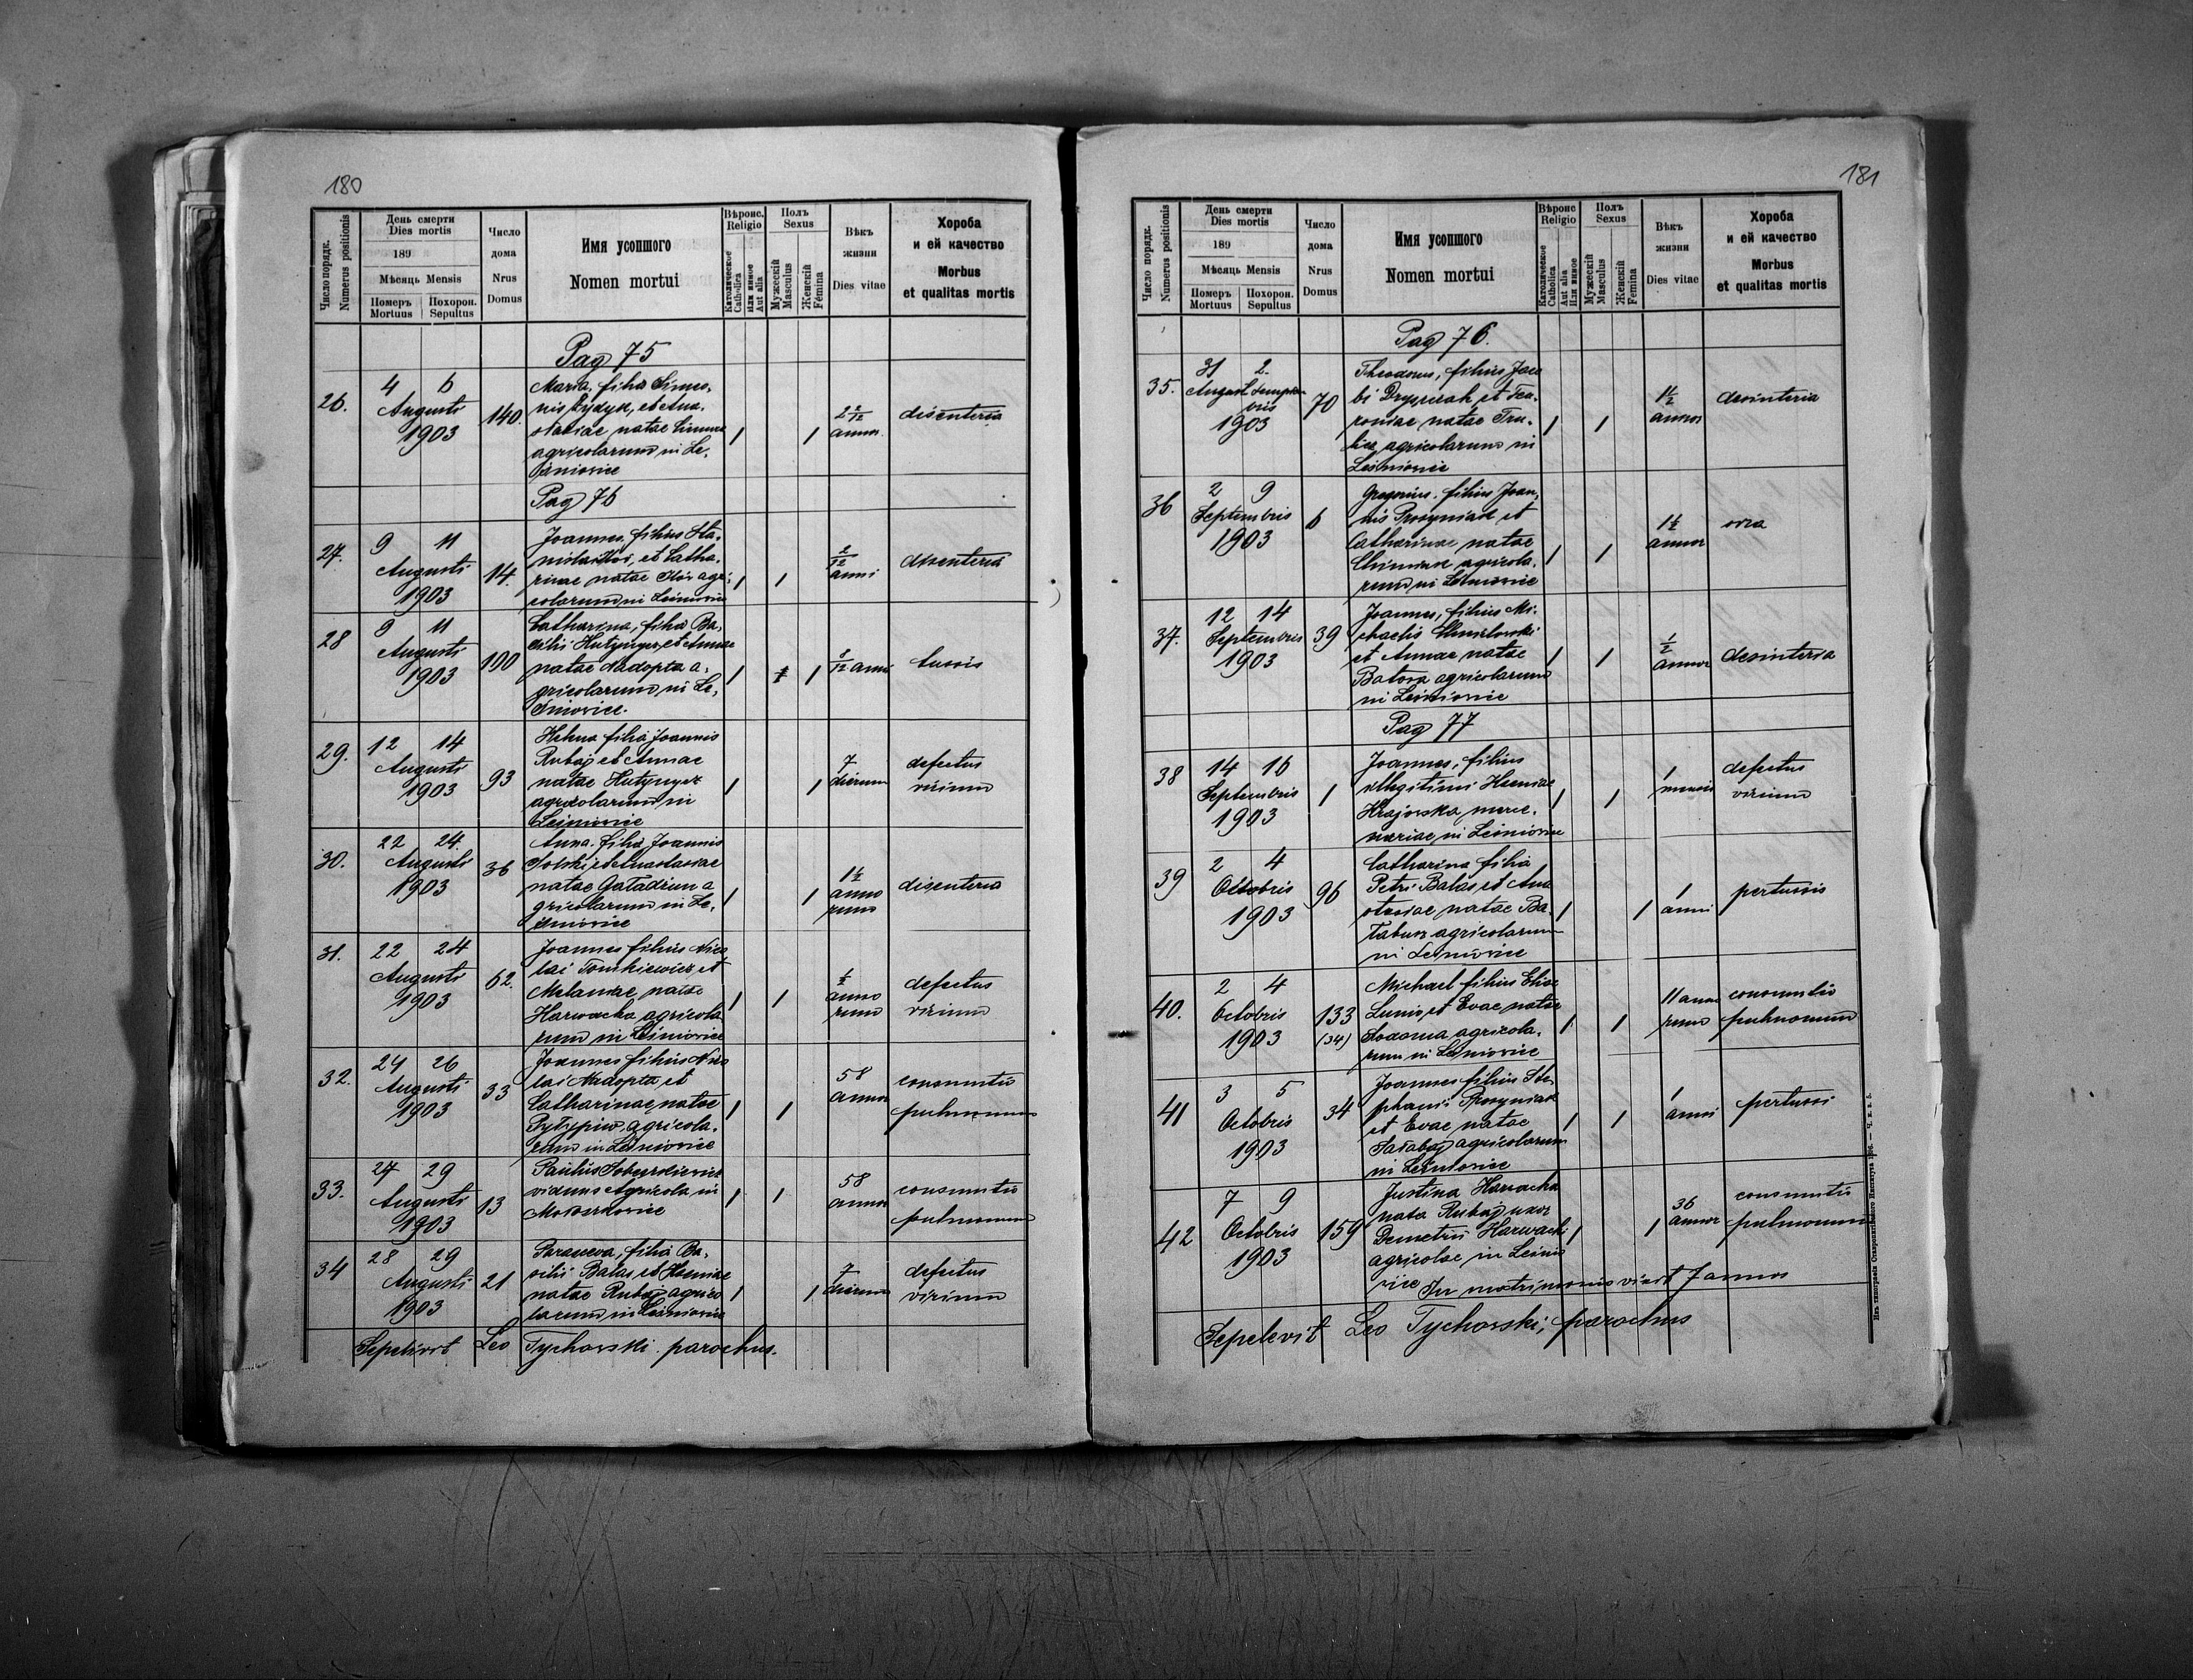 180
Число порядк. Numerus positionis
День смерти Dies mortis
189
Мѣсяць Mensis
Померъ Mortuus
Похорон. Sepultus
Число дома Nrus Domus
Имя усопшого
Nomen mortui
Вѣроис. Religio
Католическое Catholica
Или инное Aut alia
Полъ Sexus
Мужескій Masculus
Женскій Femina
Вѣкъ жизни Dies vitae
Хороба и ей качество
Morbus et qualitas mortis
Pag 75
26. 4 6 Augusti 1903 140.
Maria, filia Simeo,
nis et Ana,
stasiae natae
agricolarum in Le,
śniovice
1 1 2 2/12 annor. disenteria
Pag 76
27. 9 11 Augusti 1903 14.
Joannes, filius Sta,
et Catha,
rinae natae agri,
colarum in Leśniovice
1 1 2/12 anni disenteria
28 9 11 Augusti 1903 100
Catharina, filia Ba,
silii Hutynycz, et Annae
natae Nadopta a,
gricolarum in Le,
śniovice.
1 1 anni tussis
29. 12 14 Augusti 1903 93
Helena filia Joannis
Rubaj et Annae
natae Hutynycz
agricolarum in
Leśniovice
1 1 7 dierum defectus virium
30. 22 24. Augusti 1903 36
Anna, filia Joannis
Solski et Anastasiae
natae a
gricolarum in Le,
śniovice
1 1 1½ anno rum disenteria
31. 22 24 Augusti 1903 62.
Joannes filius Nico
lai Tomkiewicz et
Melaniae natae
Harwacka agricola
rum in Leśniovice
1 1 ½ anno rum defectus virium
32. 24 26 Augusti 1903 33
Joannes filius Nico
lai Nadopta et
Catharinae natae
Pylypiw, agricola,
rum in Leśniovice
1 1 58 annor consumtio pulmonum
33. 27 29 Augusti 1903 13
Paulus
viduus Agricola in
Mokoszkovice
1 1 58 annor consumtio pulmonum
34 28 29 Augusti 1903 21
Parasceva, filia Ba,
silii Balas et Xeniae
natae Rubaj agrico
larum in Leśniovice
1 1 7 dierum defectus virium
Sepelivit Leo Tychovski parochus.
181
Число порядк. Numerus positionis
День смерти Dies mortis
189
Мѣсяць Mensis
Померъ Mortuus
Похорон. Sepultus
Число дома Nrus Domus
Имя усопшого
Nomen mortui
Вѣроис Religio
Католическое Catholica
Aut alia Или инное
Полъ Sexus
Мужескій Masculus
Женскій Femina
Вѣкъ жизни Dies vitae
Хороба и ей качество
Morbus et qualitas mortis
Pag 76.
35. 31 2. August Septem bris 1903 70
Theodorus, filius Jaco
bi et Fev,
roniae natae
agricolarum in
Leśniovice
1 1 1½ annor desinteria
36 2 9 Septembris 1903 6
Gregorius, filius Joan,
nis Prosyniak et
Catharinae natae
agricola,
rum in Leśniovice
1 1 1½ annor
37. 12 14 Septembris 1903 39
Joannes, filius Mi,
chaelis
et Annae natae
Batova agricolarum
in Leśniovice
1 1 ½ annor desinteria
Pag 77
38 14 16 Septembris 1903 1
Joannes, filius
illegitimi Xseniae
Krajovska merce,
nariae in Leśniovice
1 1 1 mensis defectus virium
39 2 4 Octobris 1903 96
Catharina filia
Petri Balas et Ana
stasiae natae Ba,
agricolarum
in Leśniovice
1 1 1 anni pertussis
40. 2 4 Octobris 1903 133 (34)
Michael filius Eliae
et Evae natae
agricola,
rum in Leśniovice
1 1 11 anno rum consumtio pulmonum
41 3 5 Octobris 1903 34
Joannes filius Ste,
phani Prosyniak
et Evae natae
agricolarum
in Leśniovice
1 1 1 anni pertussi
42 7 9 Octobris 1903 159
Justina Harwacka
nata Rubaj uxor
Demetrii Harwacki
agricolae in Leśnio
vice In matrimonio vixit 7 annos
1 1 36 annor consumtio pulmonum
Sepelevit Leo Tychovski, parochus
Изъ типографіи Ставропигійского Института